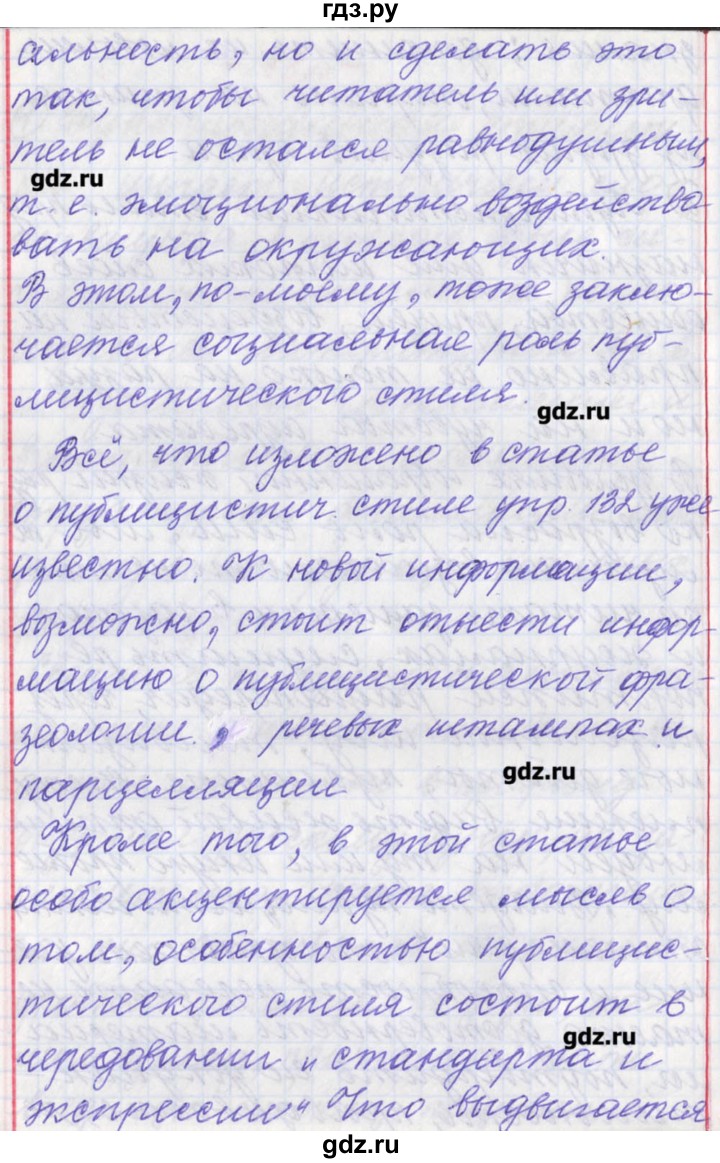 гдз.ру
альность, но и сделать это
так, чтобы читатель или зри-
тель не остался равнодушным,
gdz.ru
т. е. эмоционально воздейство
вать на окружающих.
В этом, по-моему, тоже заклю-
чается социальная роль пуб-
лицистического стиля.
gdz.ru
Всё, что изложено в статье
о публицистич. стиле упр. 132 уже
известно. К новой информации,
возможно, стоит отнести инфор-
мацию о публицистической фра-
зеологии, речевых штампах и
gdz.ru
парцелляции
Кроме того, в этой статье
особо акцентируется мысль о
том, особенностью публицис-
тического стиля состоит в
gdz.ru
чередовании "стандырта и
экспрессии" Что выдвигается
gdz.ru